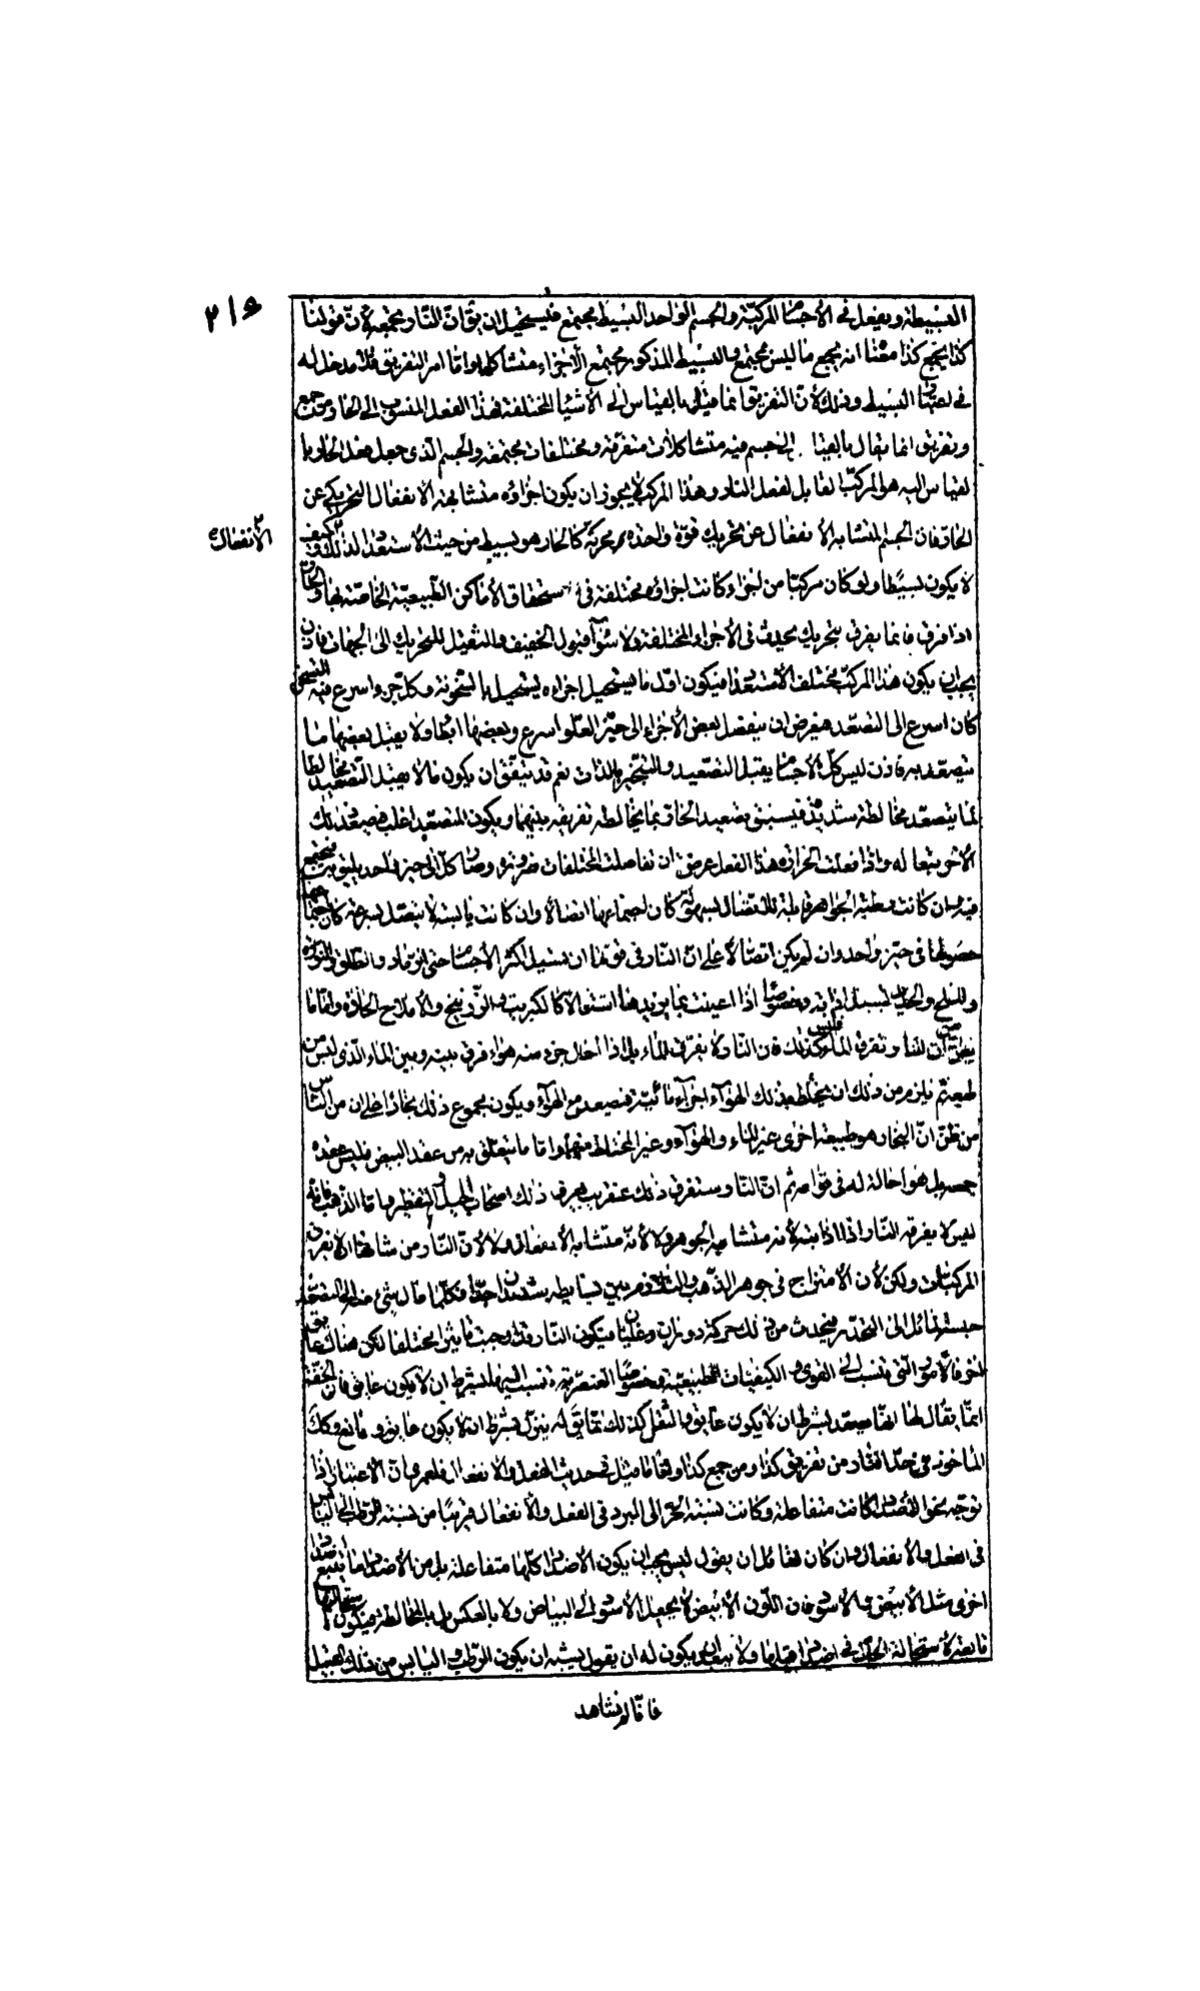 ٢١٤
البسيطة ويفعل في الأجسام المركبة والجسم الواحد البسيط مجتمع فيستحيل ان يق ان النار تجمعه لأن قولنا
كذا يجمع كذا معناه انه يجمع ما ليس بمجتمع والبسيط المذكور مجتمع الأجزاء متشاكلها واما امر التفريق فلا مدخل له
في اعتبار البسيط وذلك لأن التفريق انما قيل بالقياس الى الأشياء المختلفة فهذا الفعل المنسوب الى الحار من جمع
وتفريق انما يقال بالقياس الى جسم فيه متشاكلات متفرقة ومختلفات مجتمعة والجسم الذي جعل فعل الحار بالقياس
اليه هو المركب القابل لفعل النار وهذا المركب لا يجوز ان يكون اجزاؤه متشابهة الانفعال التحريكي عن
الحار فان الجسم المتشابه الانفعال عن تحريك قوة واحدة محركة كالحار هو بسيط من حيث الاستعداد لذلك وكيف
الانفعال
لا يكون بسيطا ولو كان مركبا من اجزاء كانت اجزاؤه مختلفة في استحقاق الأماكن الطبيعية الخاصة بها والحار
اذا فرق فانما يفرق بتحريك يحدث في الأجزاء المختلفة ولا سواء قبول الخفيف والثقيل للتحريك الى الجهات فاذن
يجب ان يكون هذا المركب مختلف الاستعداد فيكون اول ما يستحيل اجزاءه يستحيل بالسخونة وكل جزء اسرع فيه التسخن
كان اسرع الى التصعد فيعرض ان ينفصل بعض الأجزاء الى حيز العلو اسرع وبعضها ابطأ ولا يقبل بعضها ما
يتصعد به فاذن ليس كل الأجسام يقبل التصعيد والتبخير بالذات نعم قد يتفق ان يكون ما لا يقبل التصعيد مخالطا
لما يتصعد مخالطة شديدة فيسبق تصعيد الحار بما يخالطه تفريقه بينهما ويكون المتصعد اغلب فيصعد ذلك
الآخر تبعا له واذا فعلت الحرارة هذا الفعل عرض ان تفاصلت المختلفات ضرورة وصار كل الى حيز واحد يليق به فيجتمع
فيه وان كانت رطبة الجواهر قابلة للاتصال بسهولة كان اجتماعها اتصالا وان كانت يابسة لا يتصل بسرعة كان اجتماعها
حصولها في حيز واحد وان لم يكن اتصالا على ان النار في قوتها ان تسيل اكثر الأجسام حتى الرماد والطلق والنورة
والملح والحديد تسيل اذابة وخصوصا اذا اعينت بما يزيدها اشتعالا كالكبريت والزرنيخ والأملاح الحادة واما ما
يظن من ان النار تفرق الماء فليس كذلك فان النار لا يفرق الماء بل اذا احال جزء منه هواء فرق بينه وبين الماء الذي ليس من
طبعه ثم يلزم من ذلك ان يختلط بذلك الهواء اجزاء مائية فتصعد مع الهواء ويكون مجموع ذلك بخارا على ان من الناس
من ظن ان البخار هو طبيعة اخرى غير الماء والهواء وغير المختلط منهما واما ما يتعلق به من عقد البيض فليس عقده
جمعه بل هو احالة له في قوامه ثم ان النار ستفرق ذلك عن قريب يعرف ذلك اصحاب الحيل والتقطير واما الذهب فانه
ليس لا يفرقه النار اذا اذابته لأنه متشابه الجوهر ولا لأنه متشابه الانفعال ولا لأن النار من شانها ان لا يفرق
المركبات ولكن لأن الامتزاج في جوهر الذهب والتلازم بين بسايطه شديدان جدا فكلما مال شيء منه الى التصعد
حبسه المائل الى التحدر فيحدث من ذلك حركة دوران وغليان فيكون النار قد اوجبت تأثيرا مختلفا لكن هناك عايق
اخر فالأمور التي تنسب الى القوى والكيفيات الطبيعية وخصوصا العنصرية تنسب اليها بشرط ان لا يكون عايق فان الخفة
انما يقال لها انها تصعد بشرط ان لا يكون عايق والثقل كذلك انما يق له ينزل بشرط ان لا يكون عايق ومانع وكك
المأخوذ في حد النار من تفريق كذا ومن جمع كذا واما ما قيل في حديث الفعل والانفعال فلعمري ان الاعتبار اذا
توجه نحو الأضداد كانت متفاعلة وكانت نسبة الحر الى البرد في الفعل والانفعال قريبا من نسبة الرطب الى اليابس
في الفعل والانفعال وان كان لقائل ان يقول ليس يجب ان يكون الأضداد كلها متفاعلة بل من الأضداد ما يتبع اضدادا
اخرى مثل الأبيض والأسود فان اللون الأبيض لا يحيل الأسود الى البياض ولا بالعكس بل بالمخالطة فيكون استحالتها
تابعة لاستحالة الحال في اضداد قبلها ولا يبعد ان يكون له ان يقول يشبه ان يكون الرطب واليابس من ذلك القبيل
فانا لم نشاهد